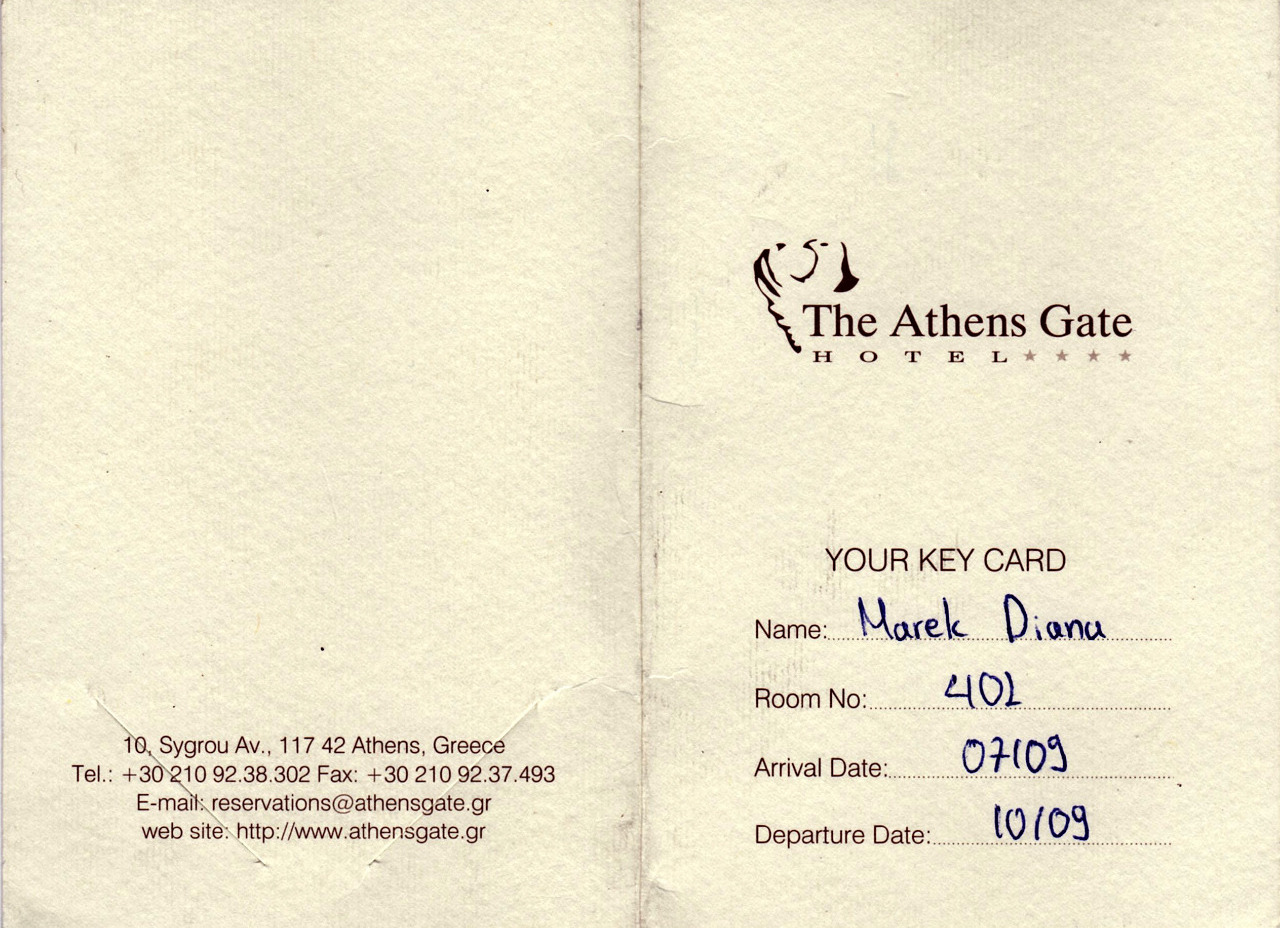 10, Sygrou Av., 117 42 Athens, Greece
Tel.: +30 210 92.38.302 Fax: +30 210 92.37.493
E-mail: reservations@athensgate.gr
web site: http://www.athensgate.gr
The Athens Gate
HOTEL ★★★★
YOUR KEY CARD
Name: Marek Diana
Room No: 402
Arrival Date: 07/09
Departure Date: 10/09